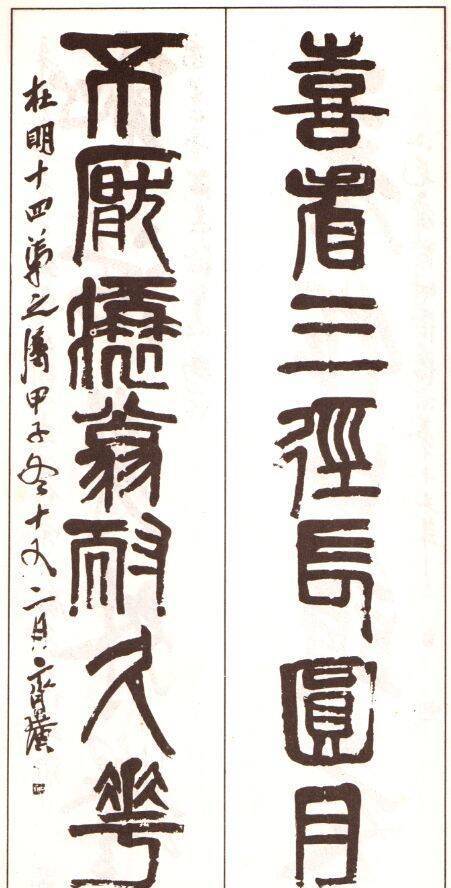 喜看三徑長圓月
不厭翁耐久花
杜明十四弟之屬甲子冬十又二月齊璜